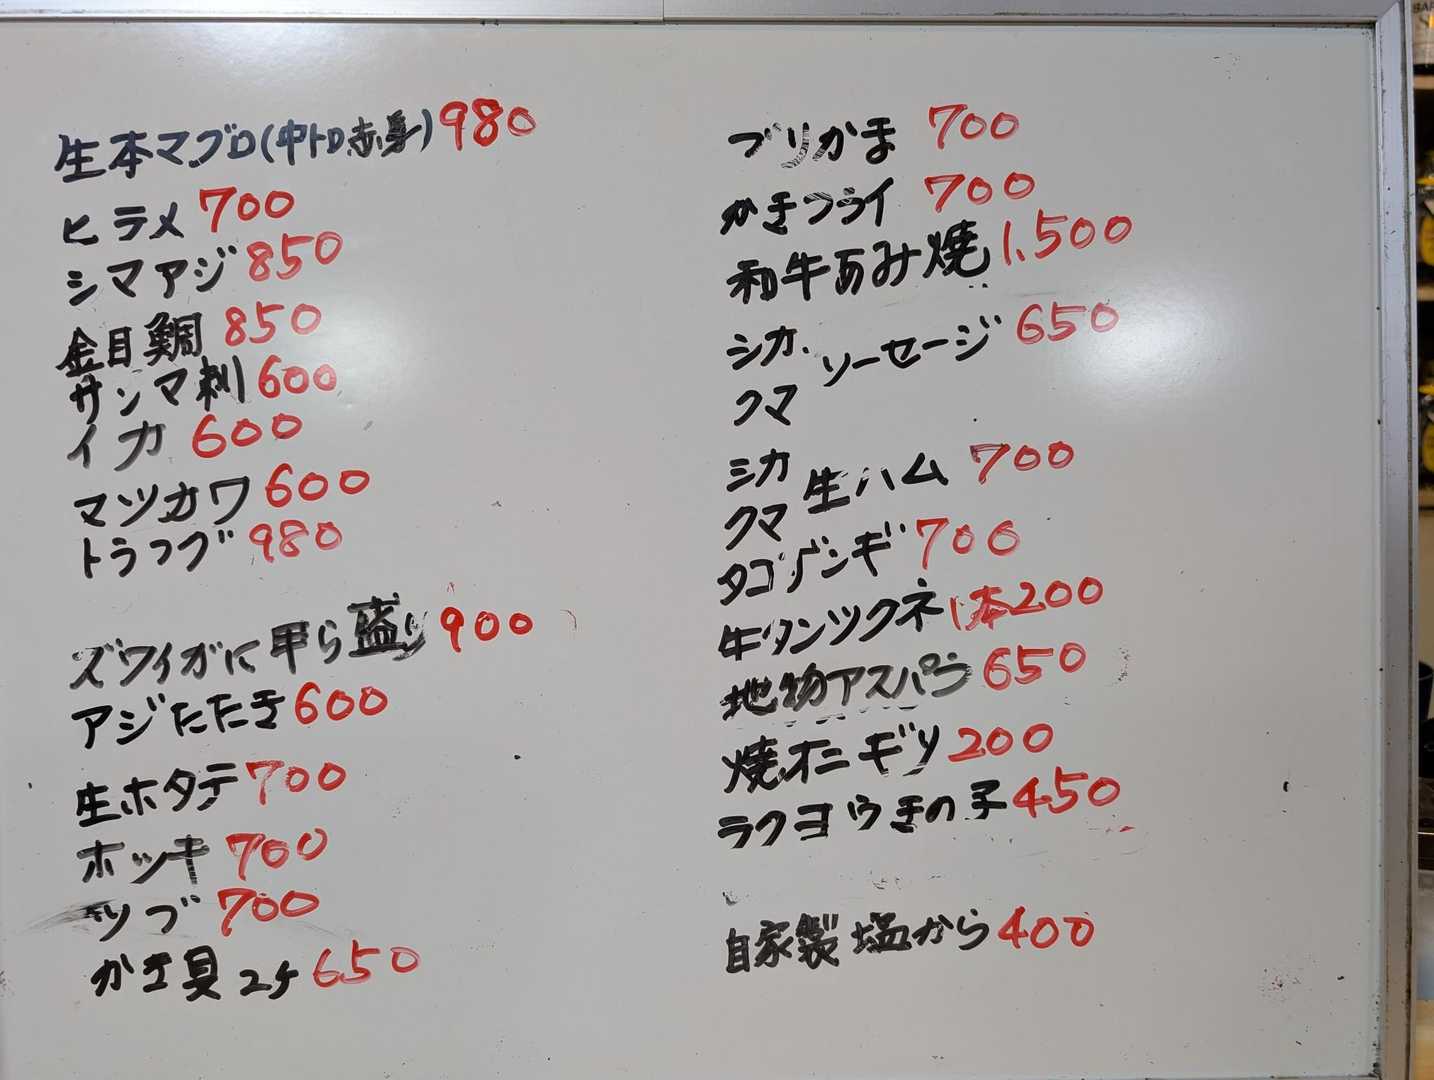 生本マグロ(中トロ.赤身)980
ヒラメ 700
シマアジ 850
金目鯛 850
サンマ刺 600
イカ 600
マツカワ 600
トラフグ 980
ズワイガに甲ら盛り 900
アジたたき 600
生ホタテ 700
ホッキ 700
ツブ 700
かき貝 2ケ 650
ブリかま 700
かきフライ 700
和牛あみ焼 1,500
シカ.
クマ
ソーセージ 650
シカ
クマ
生ハム 700
タコザンギ 700
牛タンツクネ 1本200
地物アスパラ 650
焼オニギリ 200
ラクヨウきの子 450
自家製 塩から 400